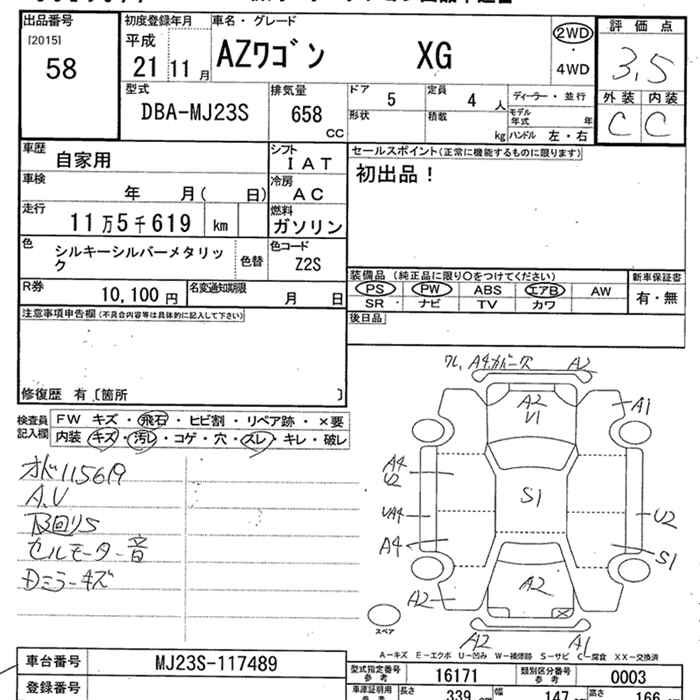 出品番号
[2015]
58
初度登録年月
平成
21 11 月
車名・グレード
AZワゴン XG
2WD
・
4WD
評価点
3.5
外装 内装
C C
型式
DBA-MJ23S
排気量
658
CC
ドア
5
定員
4 人
形状
積載
kg
ディーラー・並行
モデル年式 年
ハンドル 左・右
車歴
自家用
シフト
I A T
車検
年 月( 日)
冷房
A C
走行
11万5千619 km
燃料
ガソリン
色
シルキーシルバーメタリック
色替
色コード
Z2S
R券
10,100 円
名変通知期限
月 日
セールスポイント(正常に機能するものに限ります)
初出品!
装備品 (純正品に限り○をつけてください)
PS PW ABS エアB AW
SR ナビ TV カワ
新車保証書
有・無
後日品
注意事項申告欄(不具合内容等は具体的に記入して下さい)
修復歴 有〔箇所 〕
検査員記入欄
FW キズ・飛石・ヒビ割・リペア跡・×要
内装 キズ・汚レ・コゲ・穴・スレ・キレ・破レ
オド115619
A.V
B回りS
セルモーター音
Dミラーキズ
ワレ, A4カバー欠 A2
A2
V1
A1
A4
U2
S1
UA4
U2
A4
S1
A2
A2
A2
A1
スペア
A―キズ E―エクボ U―凹み W―補修跡 S―サビ C―腐食 XX―交換済
車台番号
MJ23S-117489
登録番号
型式指定番号
参考
16171
類別区分番号
参考
0003
車庫証明用
参考
長さ
339
幅
147
高さ
166